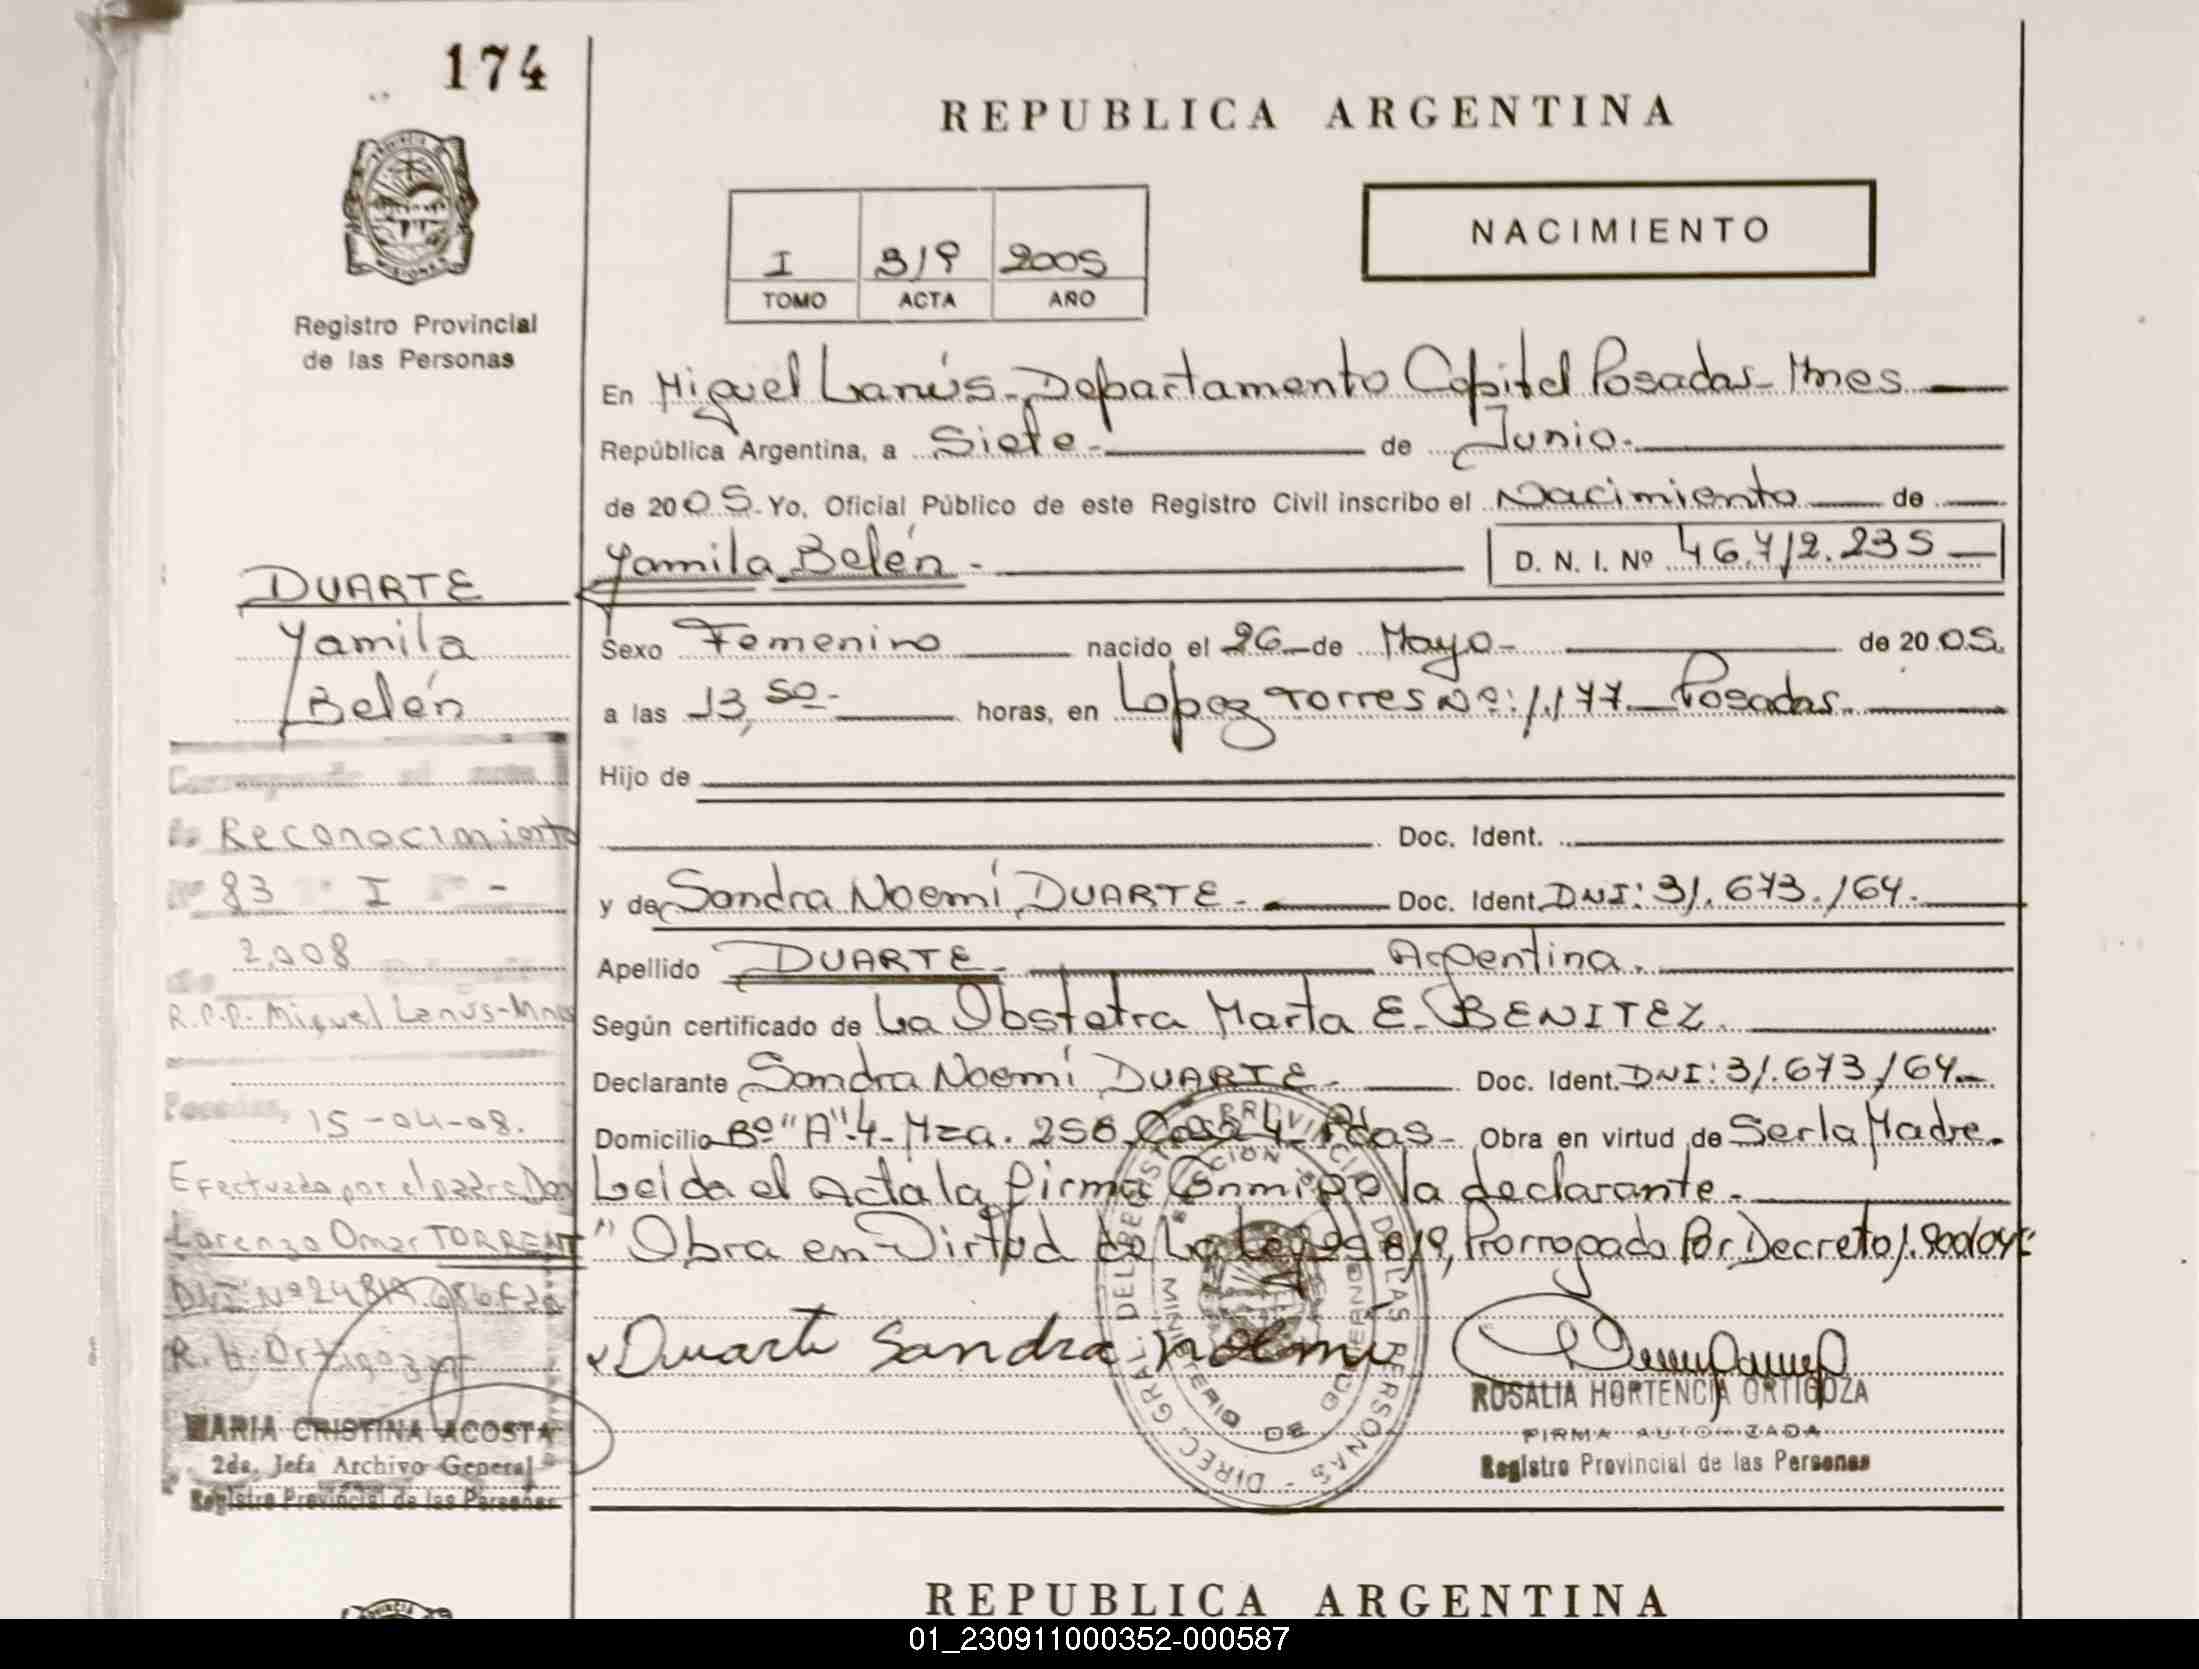 174
REPUBLICA ARGENTINA
NACIMIENTO
I 319 2005
TOMO ACTA AÑO
PROVINCIA DE
MISIONES
Registro Provincial
de las Personas
En Miguel Lanús-Departamento Capital Posadas-Mnes
República Argentina, a Siete- de Junio.
de 2005. Yo, Oficial Público de este Registro Civil inscribo el Nacimiento de
Yamila Belén - D. N. I. Nº 46.712.235
Sexo Femenino nacido el 26 de Mayo- de 2005.
a las 13,50- horas, en Lopez Torres Nº: 1.177 Posadas.
Hijo de
Doc. Ident.
y de Sandra Noemí DUARTE- Doc. Ident. DNI: 31.673.164.
Apellido DUARTE- Argentina.
Según certificado de La Obstetra Marta E. BENITEZ.
Declarante Sandra Noemí DUARTE- Doc. Ident. DNI: 31.673.164-
Domicilio Bº "A"-4-Mza. 258 Casa 4- Pdas- Obra en virtud de Ser la Madre.
Leida el Acta la firma Conmigo la declarante.
"Obra en Virtud de La Ley Prorrogada Por Decreto
Duarte Sandra Noemi
ROSALIA HORTENCIA ORTIGOZA
FIRMA AUTORIZADA
Registro Provincial de las Personas
DIREC. GRAL. DEL REGIST. PROVINCIAL DE LAS PERSONAS -
MINISTERIO DE GOBIERNO
DUARTE
Yamila
Belén
Corresponde al acta
de Reconocimiento
Nº 83 Tº I Fº -
2.008
R.P.P. Miguel Lanús-Mnes
Posadas, 15-04-08.
Efectuada por el padre Don
Lorenzo Omar TORRENT
DNI Nº
R. H. Ortigoza
MARIA CRISTINA ACOSTA
2da. Jefa Archivo General
Registro Provincial de las Personas
REPUBLICA ARGENTINA
01_230911000352-000587